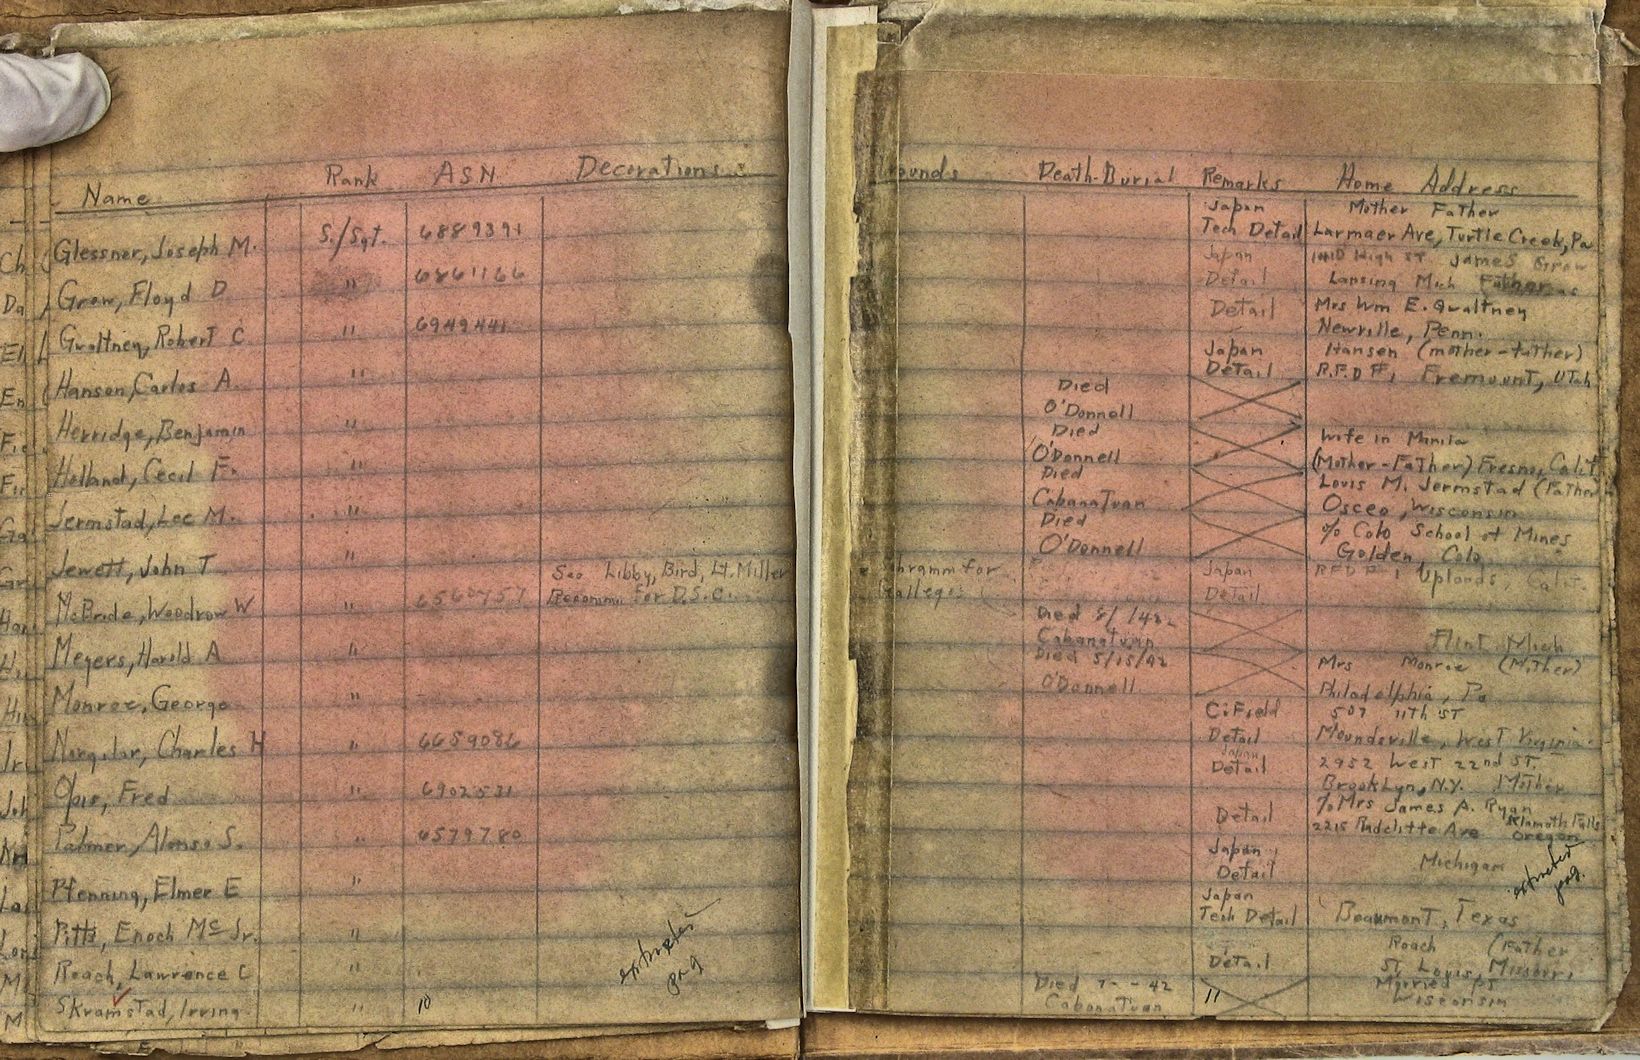 Name Rank ASN Decorations
Glessner, Joseph M. S./Sgt. 6889391
Grow, Floyd D " 6861166
Gwaltney, Robert C " 6949441
Hanson, Carlos A. "
Herridge, Benjamin "
Holland, Cecil F. "
Jermstad, Lee M. "
Jewett, John T "
See Libby, Bird, Lt. Miller
McBride, Woodrow W " 6560757 Recomm. for D.S.C.
Meyers, Harold A "
Monroe, George "
Charles H " 6659086
Opis, Fred " 6902531
Palmer, Alonso S. " 6579780
Pfenning, Elmer E "
Pitts, Enoch Mc Jr. "
Roach, Lawrence C "
Skramstad, Irving " 10
pag
ounds Death-Burial Remarks Home Address
Japan Mother Father
Tech Detail Larmaer Ave, Turtle Creek, Pa
Japan High St James Grow
Detail Lansing Mich Father
Detail Mrs Wm E. Gwaltney
Newville, Penn.
Japan Hansen (mother-father)
Detail R.F.D #1 Fremount, Utah
Died
O'Donnell
Died Wife in Manila
O'Donnell (Mother-Father) Fresno, Calif
Died Louis M. Jermstad (Father
Cabanatuan Osceo, Wisconsin
Died % Colo School of Mines
O'Donnell Golden Colo
Schramm for Japan RFD #1 Uplands, Calif.
Gallegos Detail
Died 8/ /42
Cabanatuan Flint Mich
Died 5/15/42 Mrs Monroe (Mother)
O'Donnell Philadelphia, Pa
C. Field 507 11th ST
Detail Moundsville, West Virginia
Japan
Detail 2952 West 22nd ST.
Brooklyn, N.Y. Mother
% Mrs James A. Ryan
Detail 2215 Radcliffe Ave Klamath Falls
Oregon
Japan
Detail Michigan
pag.
Japan
Tech Detail Beaumont, Texas
Roach (Father
Detail St. Louis, Missouri
Died 7- -42 11 Married PS
Cabanatuan Wisconsin